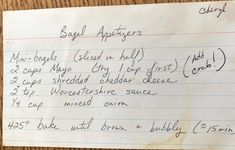 Cheryl
Bagel Appetizers
Mini-bagels (sliced in half)
2 cups Mayo (try 1 cup first) (Add crab!)
2 cups shredded cheddar cheese
2 tsp Worcestershire sauce
1/4 cup minced onion
425° bake until brown + bubbly (≈15 min